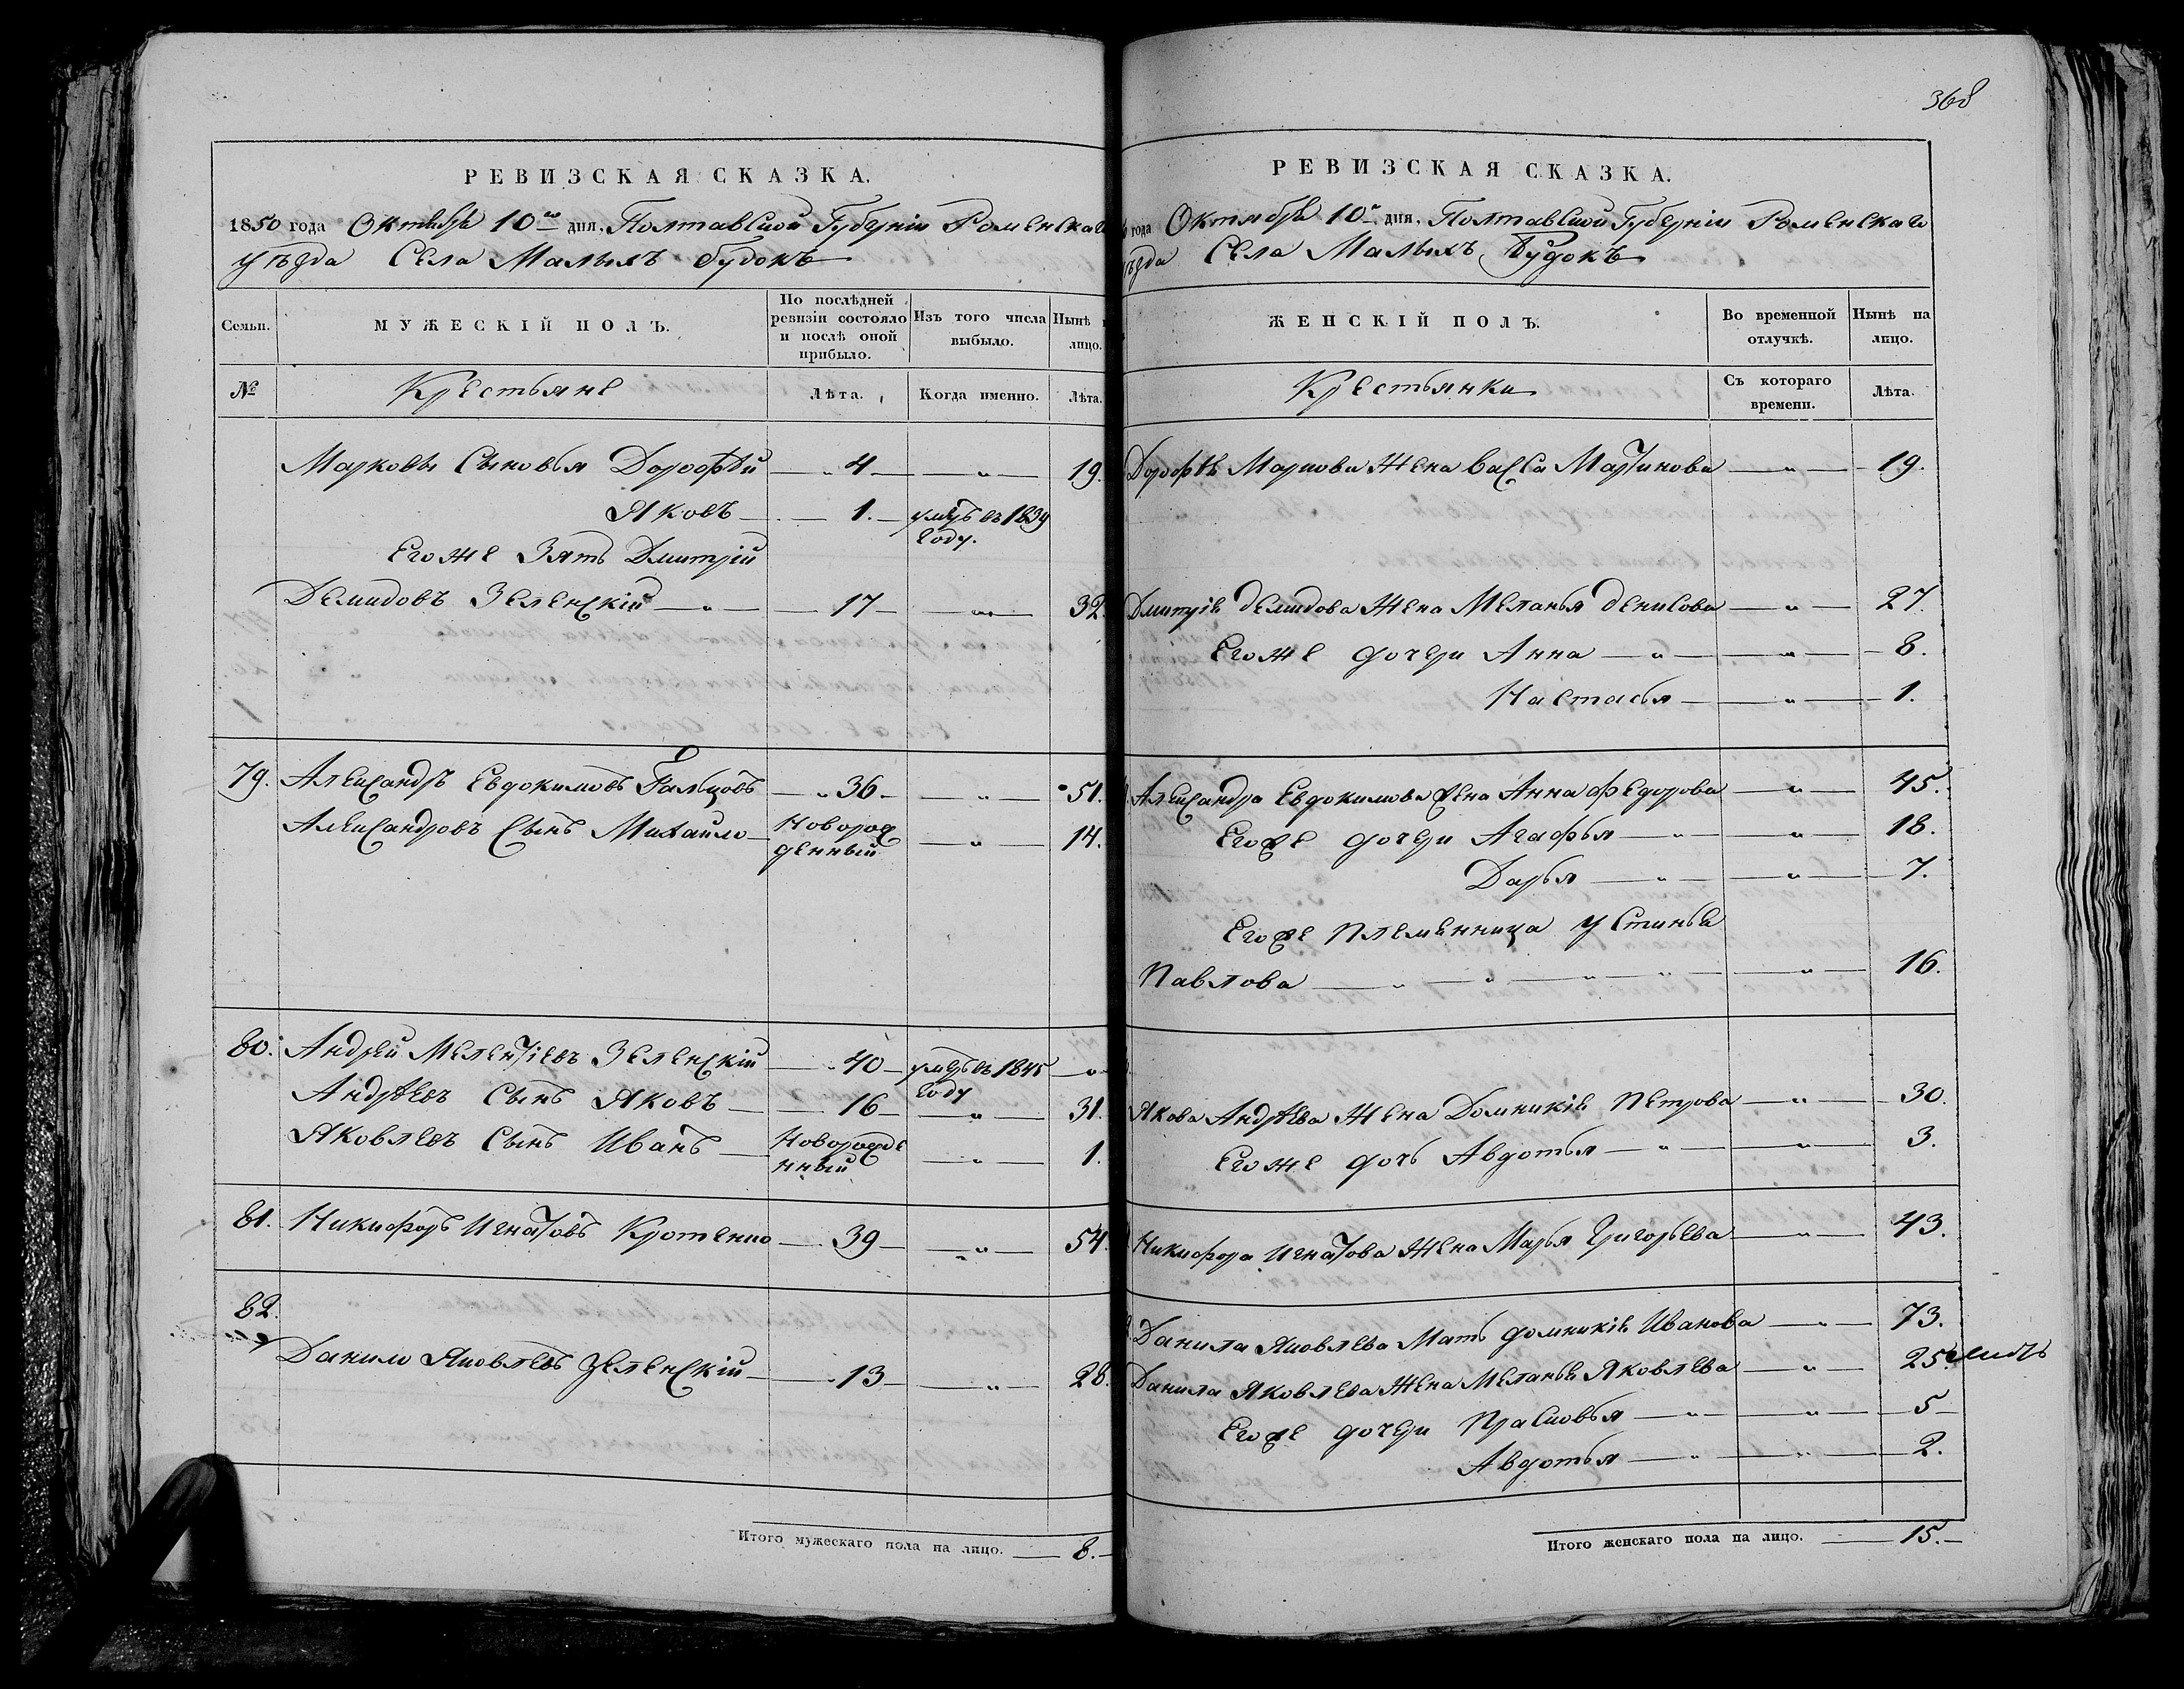 368
РЕВИЗСКАЯ СКАЗКА.
1850 года Октября 10го дня, Полтавской Губерніи Роменскаго
уѣзда Села Малыхъ будокъ
Семьи.
МУЖЕСКІЙ ПОЛЪ.
По послѣдней ревизіи состояло и послѣ оной прибыло.
Изъ того числа выбыло.
Нынѣ лицо.
№
Крестьяне
Лѣта.
Когда именно.
Лѣта.
Марковы Сыновья Дорофѣй — 4 — " — 19.
Яковъ — 1. — умеръ въ 1839
году.
Егоже Зять Дмитрій
Демидовъ Зеленскій — " — 17 — " — 32.
79. Александръ Евдокимовъ Гальцовъ — 36 — " — 51.
Александровъ Сынъ Михайло — Новорож
денный — " — 14.
80. Андрей Мелентіевъ Зеленскій — 40 — умеръ въ 1845 — "
году
Андрѣевъ Сынъ Яковъ — 16 — " — 31.
Яковлевъ Сынъ Иванъ — Новорожде
нный — " — 1.
81. Никифоръ Игнатовъ Кротенко — 39 — " — 54.
82.
Данило Яковлевъ Зеленскій — 13 — " — 28.
Итого мужескаго пола на лицо. — 8. —
РЕВИЗСКАЯ СКАЗКА.
года Октября 10го дня, Полтавской Губерніи Роменскаго
уѣзда Села Малыхъ Будокъ
ЖЕНСКІЙ ПОЛЪ.
Во временной отлучкѣ.
Нынѣ на лицо.
Крестьянки
Съ котораго времени.
Лѣта.
Дорофѣя Маркова Жена Васса Мартинова — " — 19.
Дмитрія Демидова Жена Меланья Денисова — " — 27.
Егоже дочери Анна — " — " — 8.
Настасья — " — 1.
Александра Евдокимова Жена Анна Федорова — " — 45.
Егоже дочери Агафья — " — " — 18.
Дарья — " — " — 7.
Егоже племенница Устинья
Павлова — " — " — " — " — 16.
Якова Андрѣева Жена Домникія Петрова — " — 30.
Егоже дочь Авдотья — " — " — 3.
Никифора Игнатова Жена Марья Григорьева — " — 43.
Данила Яковлева Мать Домникія Иванова — " — 73.
Данила Яковлева Жена Меланья Яковлева — " — 25.
Егоже дочери Прасковья — " — " — 5
Авдотья — " — " — 2.
Итого женскаго пола на лицо. — 15. —